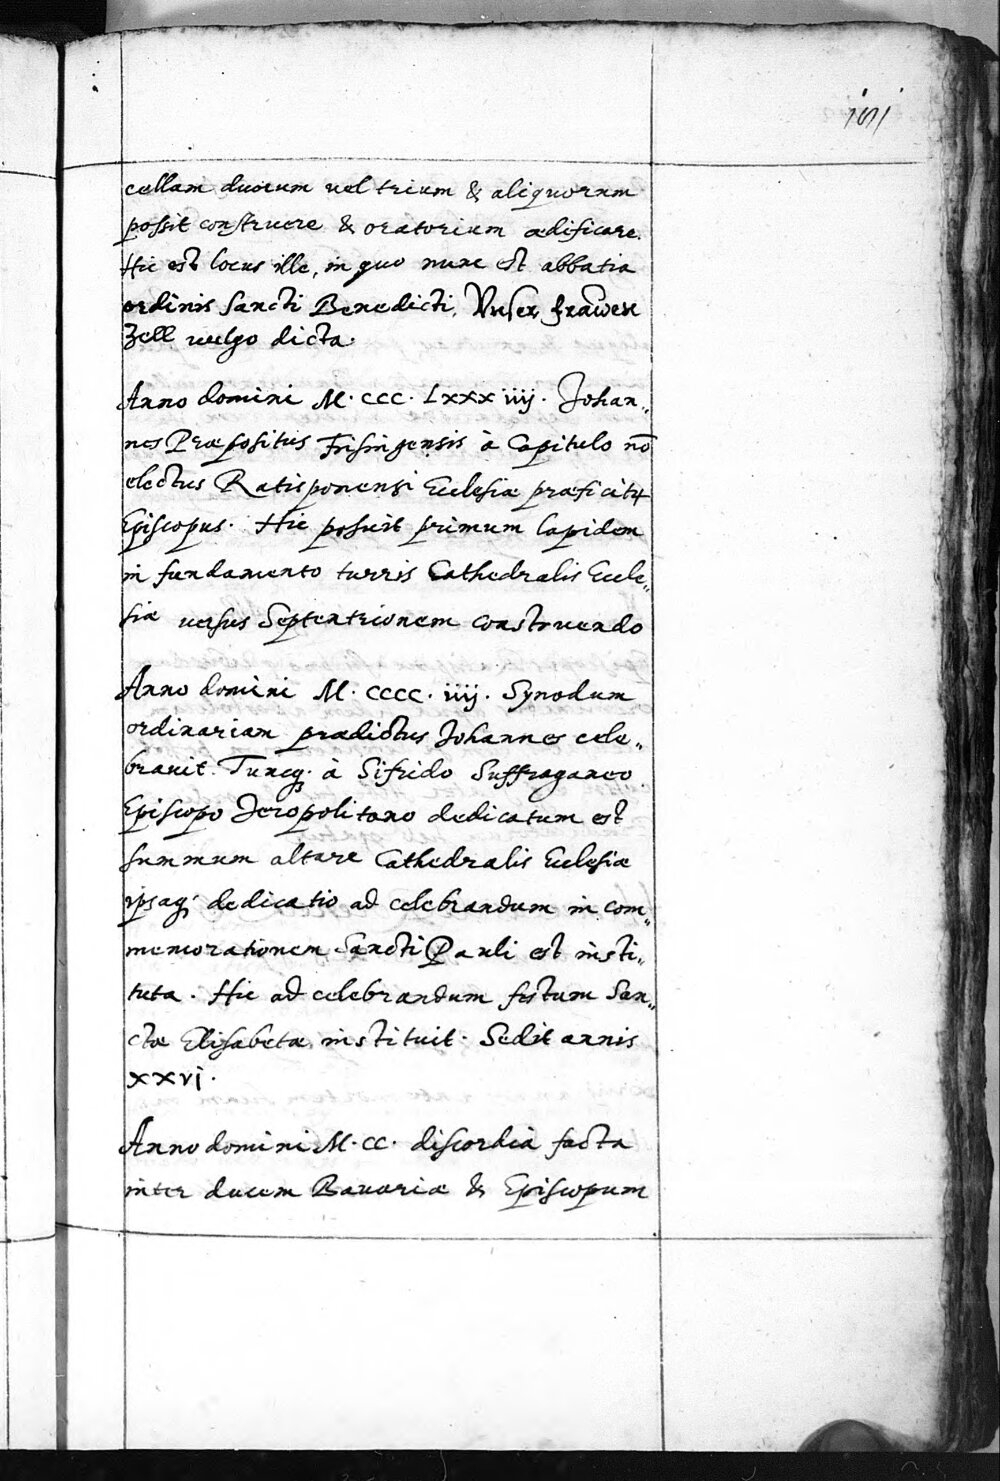 151
cellam duorum uel trium & aliquorum
possit construere & oratorium ædificare.
Hic est locus ille, in quo nunc est abbatia
ordinis Sancti Benedicti, Vnser frawen
Zell uulgo dicta.
Anno domini M. CCC. LXXXiiij. Johan„
nes Præpositus Frisingensis à Capitulo nō
electus Ratisponensi Ecclesiæ præficitur
Episcopus. Hic posuit primum lapidem
in fundamento turris Cathedralis Eccle„
siæ uersus Septentrionem construendo
Anno domini M. CCCC. iiij. Synodum
ordinariam prædictus Johannes cele„
brauit. Tuncq; à Sifrido Suffraganeo
Episcopo Jeropolitano dedicatum est
summum altare Cathedralis Ecclesiæ
ipsaq; dedicatio ad celebrandum in com„
memorationem Sancti Pauli est insti„
tuta. Hic ad celebrandum festum San„
ctæ Elisabetæ instituit. Sedit annis
XXVI.
Anno domini M. CC. discordia facta
inter ducem Bauariæ & Episcopum